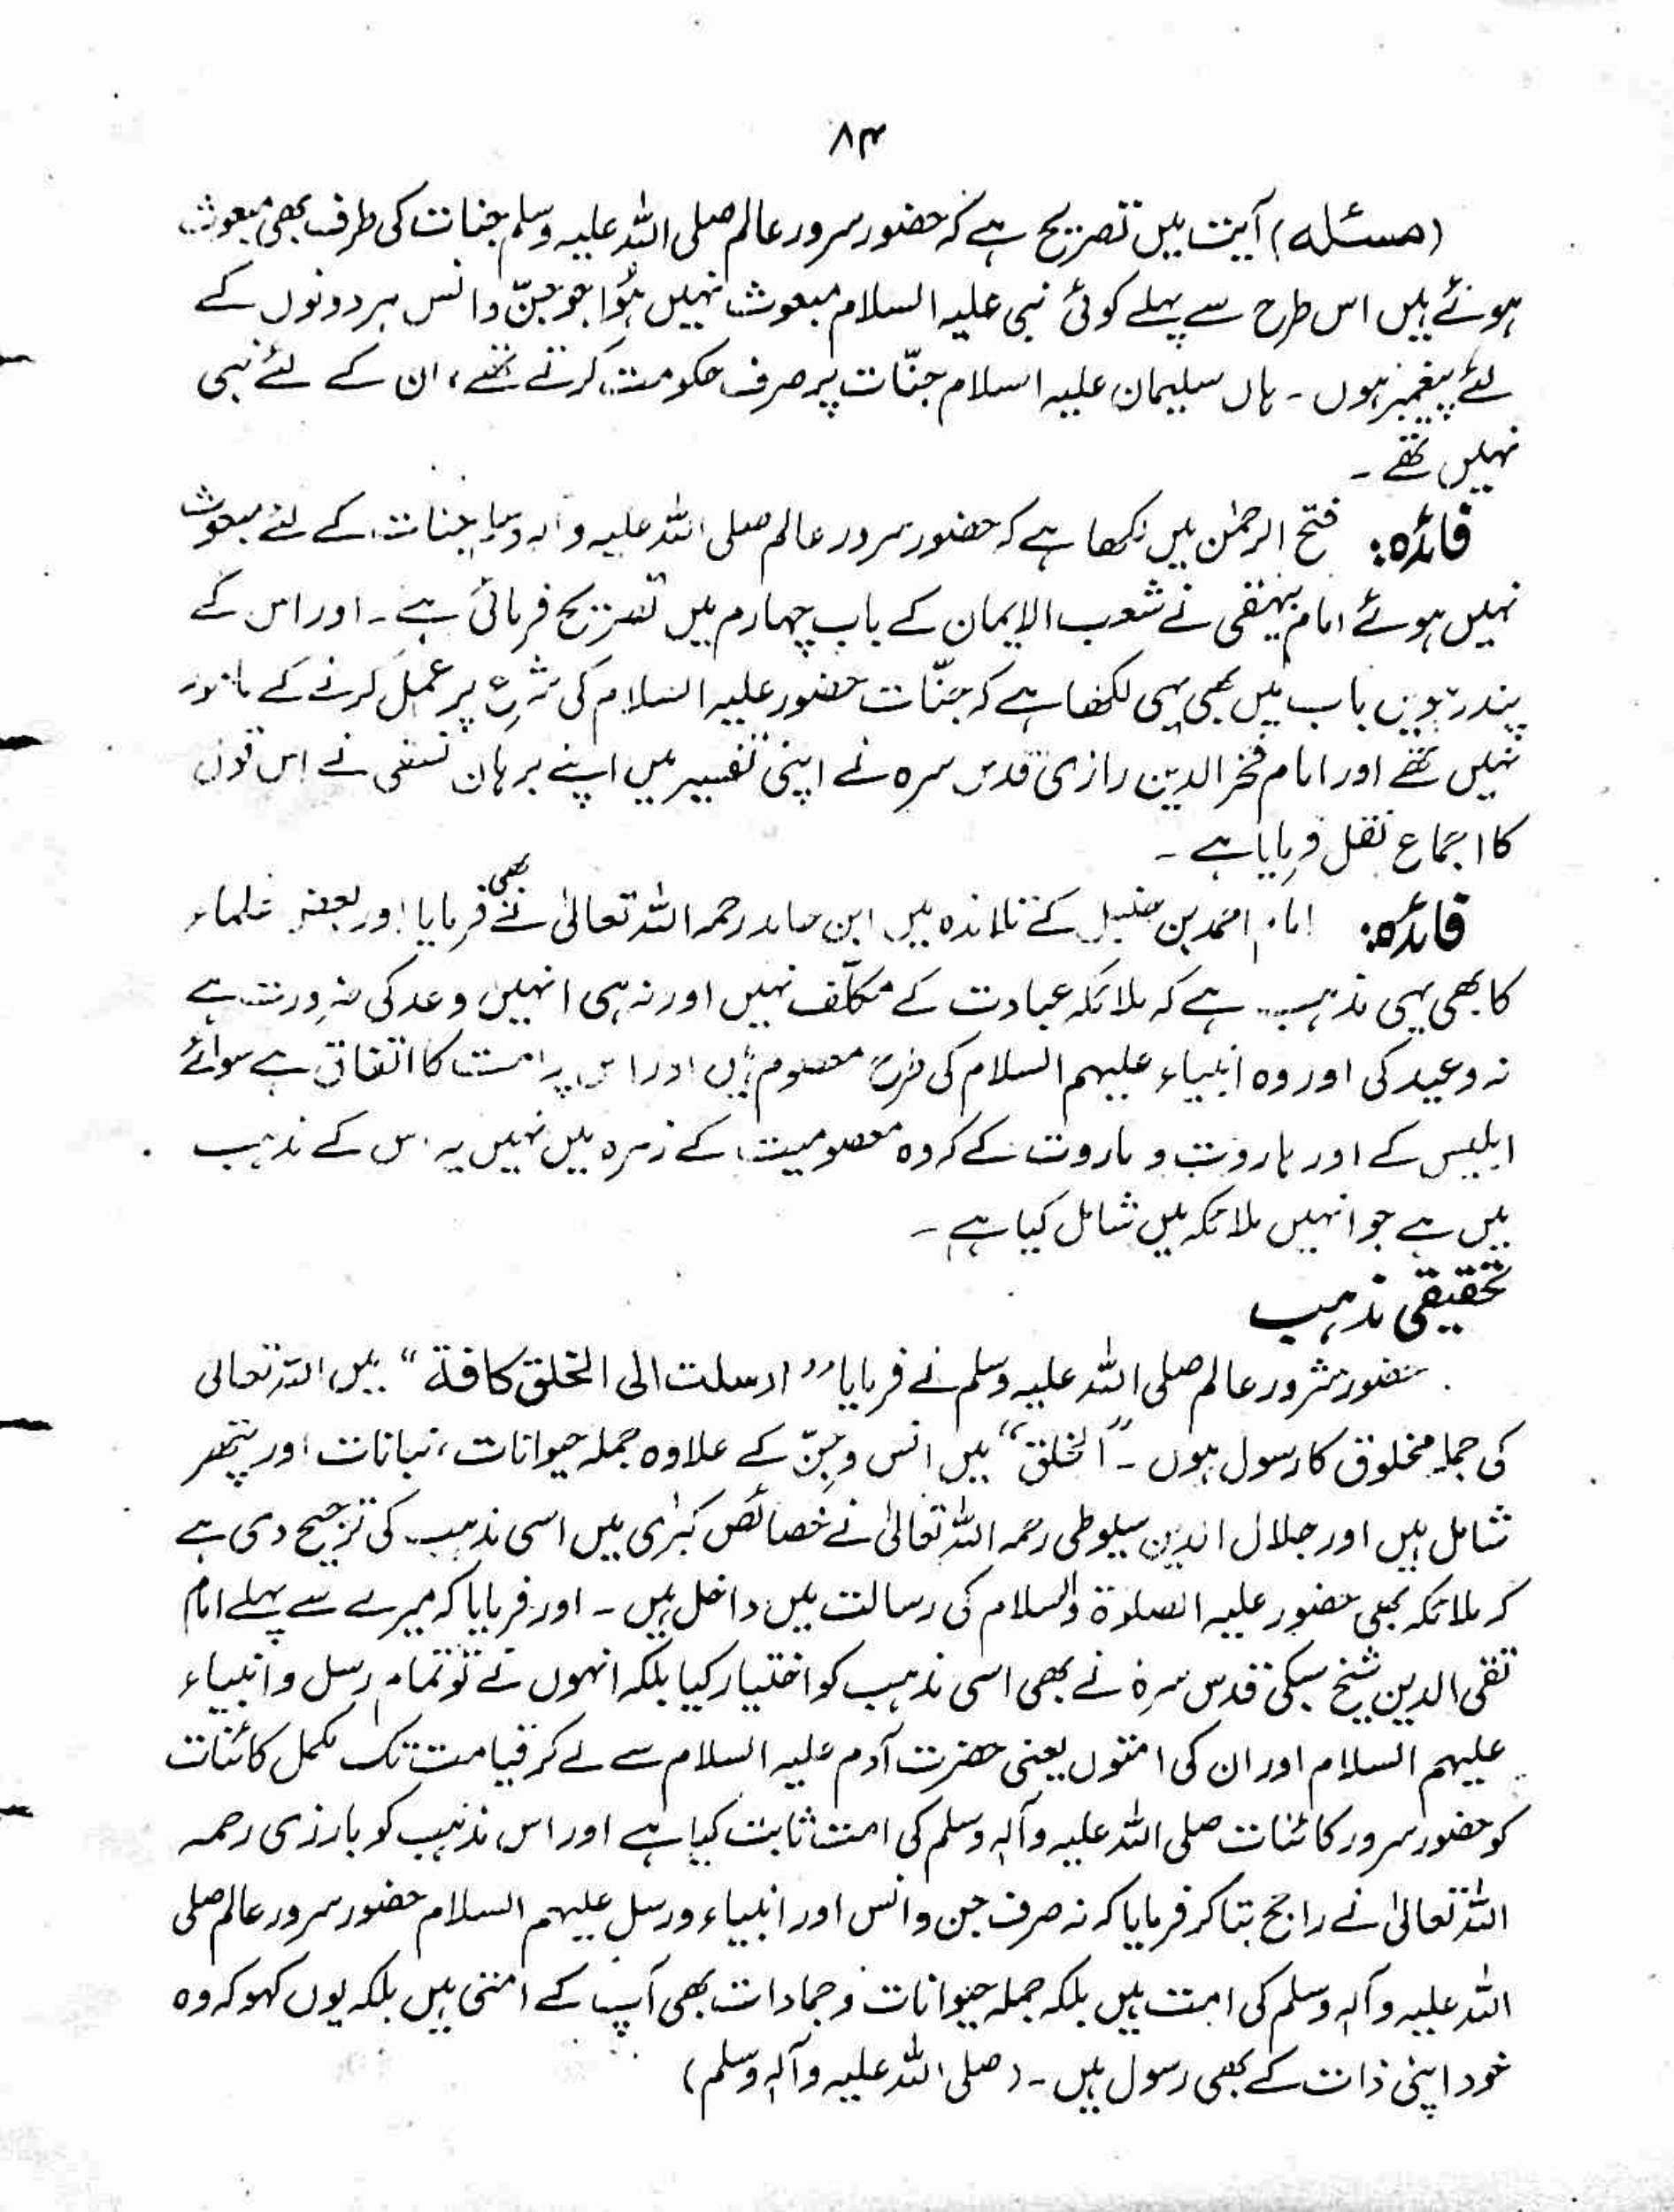 ۸۴
(مسئلہ) آیت میں تصریح ہے کہ حضور سرور عالم صلی اللہ علیہ وسلم جنات کی طرف بھی مبعوث
ہوئے ہیں اس طرح سے پہلے کوئی نبی علیہ السلام مبعوث نہیں ہؤا جو جنّ و انس ہر دونوں کے
لئے پیغمبر ہوں ۔ ہاں سلیمان علیہ اسلام جنّات پر صرف حکومت کرتے تھے، ان کے لئے نبی
نہیں تھے ۔
فائدہ: فتح الرحمٰن میں لکھا ہے کہ حضور سرور عالم صلی اللہ علیہ وآلہ وسلم جنات کے لئے مبعوث
نہیں ہوئے امام بیہقی نے شعب الایمان کے باب چہارم میں تصریح فرمائی ہے ۔ اور اس کے
پندرہویں باب میں بھی یہی لکھا ہے کہ جنّات حضور علیہ السلام کی شرع پر عمل کرنے کے مامور
نہیں تھے اور امام فخر الدین رازی قدس سرہ نے اپنی تفسیر میں اپنے برہان نسفی نے اس قول
کا اجماع نقل فرمایا ہے ۔
فائدہ: امام احمد بن حنبل کے تلامذہ میں ابن حامد رحمہ اللہ تعالیٰ نے بھی فرمایا اور بعض علماء
کا بھی یہی مذہب ہے کہ ملائکہ عبادت کے مکلّف نہیں اور نہ ہی انہیں وعد کی ضرورت ہے
نہ وعید کی اور وہ انبیاء علیہم السلام کی طرح معصوم ہیں اور اس پر امت کا اتفاق ہے سوائے
ابلیس کے اور ہاروت و ماروت کے کہ وہ معصومیت کے زمرہ میں نہیں یہ اس کے مذہب
میں ہے جو انہیں ملائکہ میں شامل کیا ہے ۔
تحقیقی مذہب
حضور سرور عالم صلی اللہ علیہ وسلم نے فرمایا ” ارسلت الی الخلق کافة “ میں اللہ تعالی
کی جملہ مخلوق کا رسول ہوں ۔ ”الخلق“ میں انس و جنّ کے علاوہ جملہ حیوانات، نباتات اور پتھر
شامل ہیں اور جلال الدین سیلوطی رحمہ اللہ تعالیٰ نے خصائص کبرٰی میں اسی مذہب کی ترجیح دی ہے
کہ ملائکہ بھی حضور علیہ الصلوۃ والسلام کی رسالت میں داخل ہیں ۔ اور فرمایا کہ میرے سے پہلے امام
تقی الدین شیخ سبکی قدس سرہ نے بھی اسی مذہب کو اختیار کیا بلکہ انہوں نے تو تمام رسل و انبیاء
علیہم السلام اور ان کی امتوں یعنی حضرت آدم علیہ السلام سے لے کر قیامت تک مکمل کائنات
کو حضور سرور کائنات صلی اللہ علیہ وآلہ وسلم کی امت ثابت کیا ہے اور اس مذہب کو بارزی رحمہ
اللہ تعالیٰ نے راجح بتا کر فرمایا کہ نہ صرف جن و انس اور انبیاء و رسل علیہم السلام حضور سرور عالم صلی
اللہ علیہ وآلہ وسلم کی امت ہیں بلکہ جملہ حیوانات و جمادات بھی آپ کے امتی ہیں بلکہ یوں کہو کہ وہ
خود اپنی ذات کے بھی رسول ہیں ۔ (صلی اللہ علیہ وآلہ وسلم)